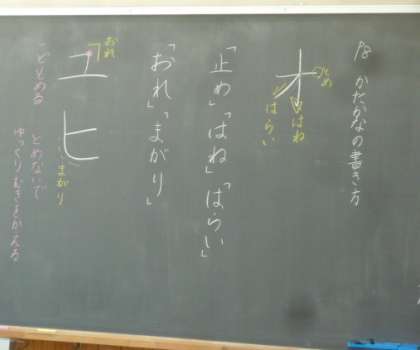 P8 かたかなの書き方
オ
とめ
はね
はらい
「止め」「はね」「はらい」
「おれ」「まがり」
ユ
おれ
ヒ
まがり
とめないで
ゆっくりむきをかえる